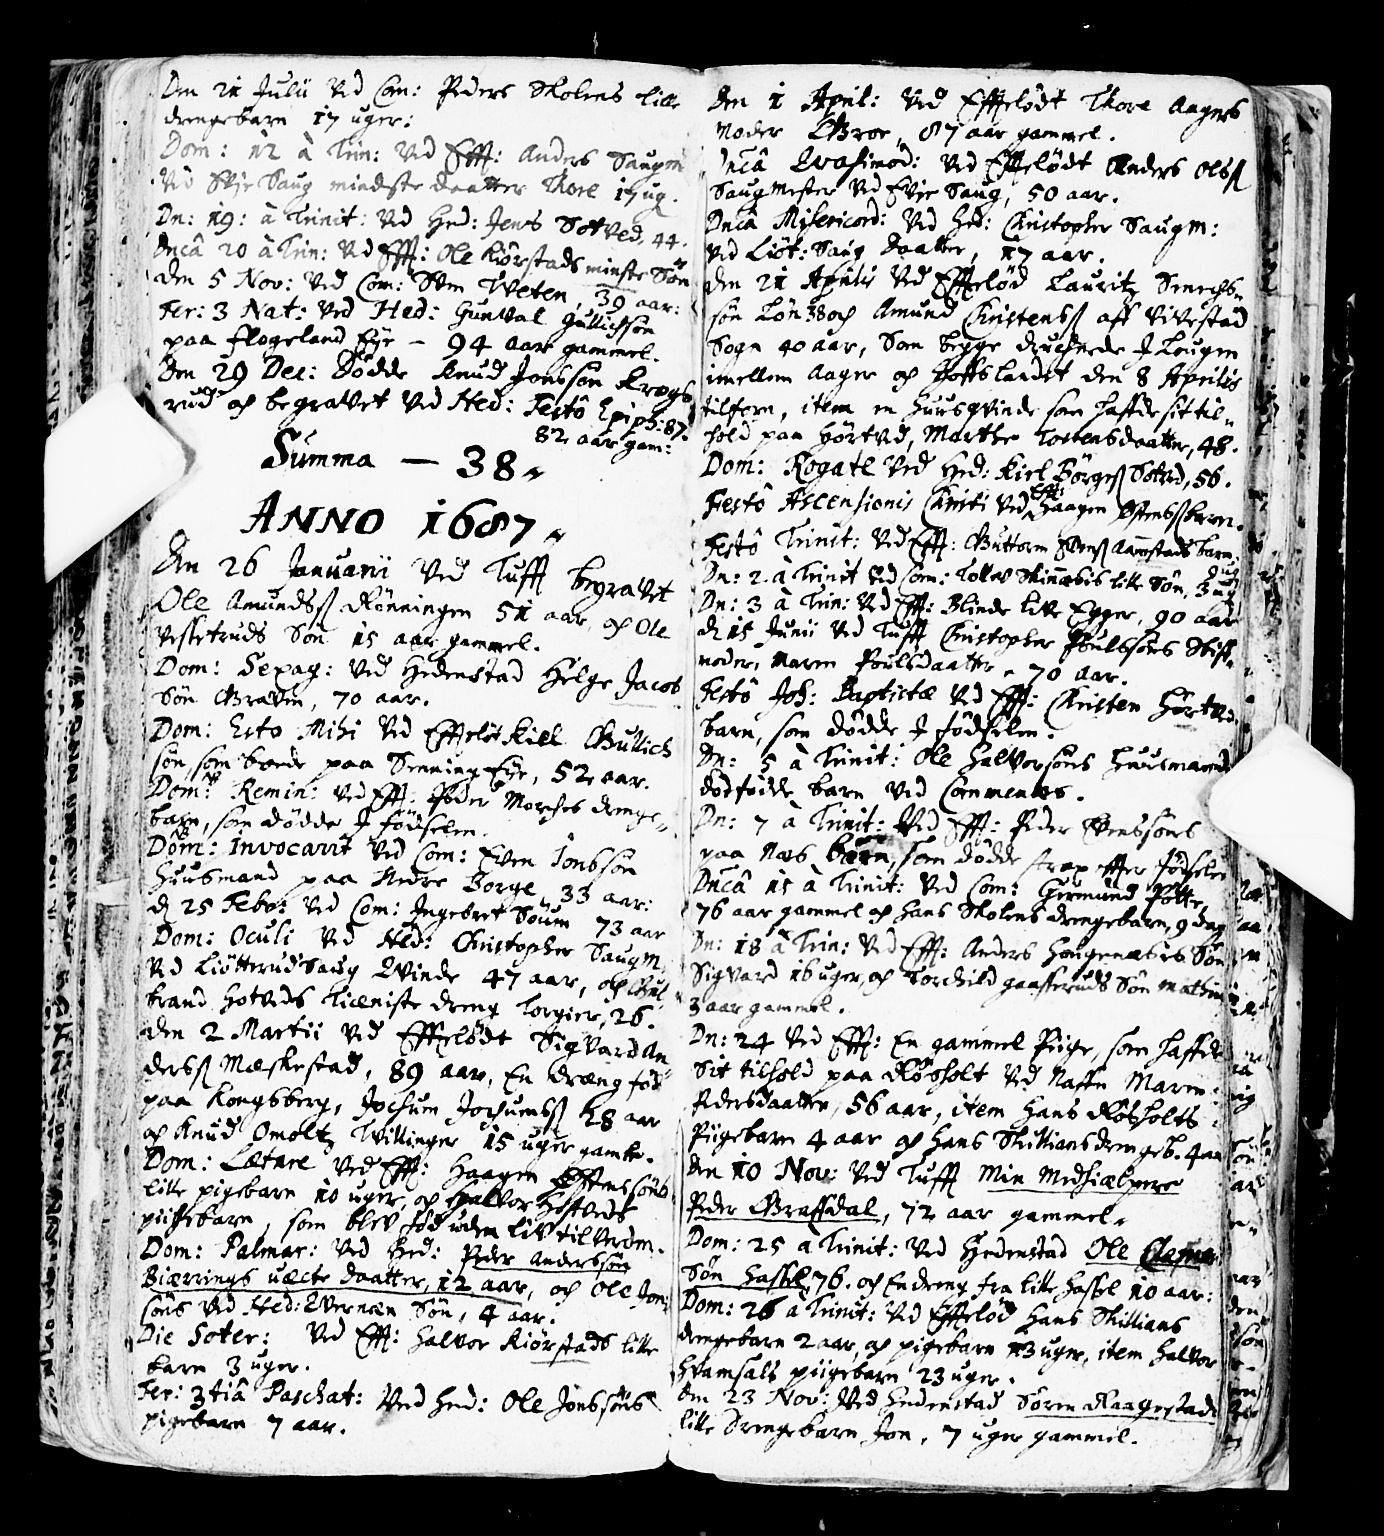 Den 21 Julii Ved Com: Peders Skolens lille
drengebarn 17 uger:
Dom: 12 à Trin: Ved Efft: Anders Saugm
Ved Saug mindste daatter Thore 17 ug.
Dn: 19: à Trinit: Ved Hed: Jens Sotved, 44.
Dncâ 20 à Trin: Ved Efft: Ole Kiørstads minste Søn
den 5 Nov: Ved Com: Sven Tveten, 39 aar:
Fer: 3 Nat: Ved Hed: Gunval Gullichsøn
paa flogeland Eye - 94 aar gammel.
Den 29 Dec: Dödde Knud Jonssøn Krags
rud och begravet Ved Hed: Festô Epiph: 87.
82 aar gam:
Summa — 38
ANNO 1687
Den 26 Januarii Ved Tufft begravet
Ole Amundsß Rönningen 51 aar, och Ole
Vesletruds Søn 15 aar gammel.
Dom: Sexag: Ved Hedenstad Helge Jacob
Søn Gravin, 70 aar.
Dom: Esto Mihi Ved Effteløt Kield Gullich
søn som boede paa Senning Eye, 52 aar.
Dom: Remin: Ved Efft: Peder Morches drenge
barn, som dödde J födselen.
Dom: Invocavit Ved Com: Even Jonssøn
Huusmand paa Nedre Borge 33 aar:
d 25 Febr: Ved Com: Ingebret Soum 73 aar
Dom: Oculi Ved Hed: Christopher Saugm.
Ved Liötterud Saug Qvinde 47 aar, och Gul
brand Hotveds Tieniste dreng Torgier, 26.
den 2 Martii Ved Efftelödt Sigvard An
dersß Mæskestad, 89 aar, En dræng föd
paa Kongsberg, Jochum Jochumsß 28 aar
och Knud Omoltz Tvillinger 15 uger gamle.
Dom: Lætare Ved Efft: Haagen Efftenssöns
lille pigebarn 10 uger, och Halvor Hostveds
piigebarn, som blev föd uden liv til Verden.
Dom: Palmar: Ved Hed: Peder Anderssøn
Biærrings uæcte daatter, 12 aar, och Ole Jon
söns Ved Hed: Evernæn Søn, 4 aar.
Die Soter: Ved Efft: Halvor Kiörstads lille
barn 3 uger.
Fer: 3tiâ Paschat: Ved Hed: Ole Jonssöns
pigebarn 7 aar.
Den 1 April: Ved Efftelödt Thore Aagers
Moder Groe, 87 aar gammel.
Dncâ Qvasimod: Ved Efftelödt Anders Olsß
Saugmester Ved Evje Saug, 50 aar.
Dncâ Misericord: Ved Hed: Christopher Saugm:
Ved Liöt: Saug Daatter, 17 aar.
den 21 Aprilis Ved Efftelöd Lauritz Senechs
søn Lön 38 och Amund Christensß aff Vivestad
Sogn 40 aar, Som begge druchnede J Lougen
imellem Aager och Hoffslandet den 8 Aprilis
tilforn, item en huusqvinde som haffde sit til
hold paa Hörtved, Marthe Tostensdaatter, 48.
Dom: Rogate Ved Hed: Kield Börgesß Sotved, 56.
Festô Ascensionis Christi Ved Efft: Haagen Östensß barn.
Festô Trinit: Ved Efft: Guttorm Evensß Aamstads barn
Dn: 2 à Trinit Ved Com: Tollev Skinnæbis lille Søn, 3 ug
Dn: 3 à Trin: Ved Efft: Blinde Live Egger, 90 aar
d 15 Junii Ved Tufft Christopher Poulssöns Stiff
moder, Maren Poulsdaatter, 70 aar.
Festô Joh: Baptistæ Ved Efft: Christen Hörtved
barn, som dödde J födselen.
Dn: 5 à Trinit: Ole Halvorsöns Huusmands
dödfödde barn Ved Commenæs.
Dn: 7 à Trinit: Ved Efft: Peder Evenssöns
paa Næs barn, som dödde strax effter födselen
Dncâ 15 à Trinit: Ved Com: Germund Potte,
76 aar gammel och Hans Skolens drengebarn, 9 dag
Dn: 18 à Trin: Ved Efft: Anders Hougenæbis Søn
Sigvard 16 uger, och Torchild gaasseruds Søn Mathis
3 aar gammel.
Dn: 24 Ved Efft: En gammel Piige, som haffde
Sit tilhold paa Rösholt Ved Naffn Maren
Pedersdaatter, 56 aar, item Hans Rösholts
Piigebarn 4 aar och Hans Skillians drengeb. 4 aar
den 10 Nov: Ved Tufft Min Medhiælpere
Peder Graffdal, 72 aar gammel.
Dom: 25 à Trinit: Ved Hedenstad Ole Clemet
Søn Hassel 76. och En dreng fra lille Hassel 10 aar:
Dom: 26 à Trinit: Ved Efftelöd Hans Skillians
drengebarn 2 aar, och pigebarn 13 uger, item Halvor
Hvamsals piigebarn 23 uger.
Den 23 Nov: Ved Hedenstad Søren Raagestads
lille Drengebarn Jon, 7 uger gammel.